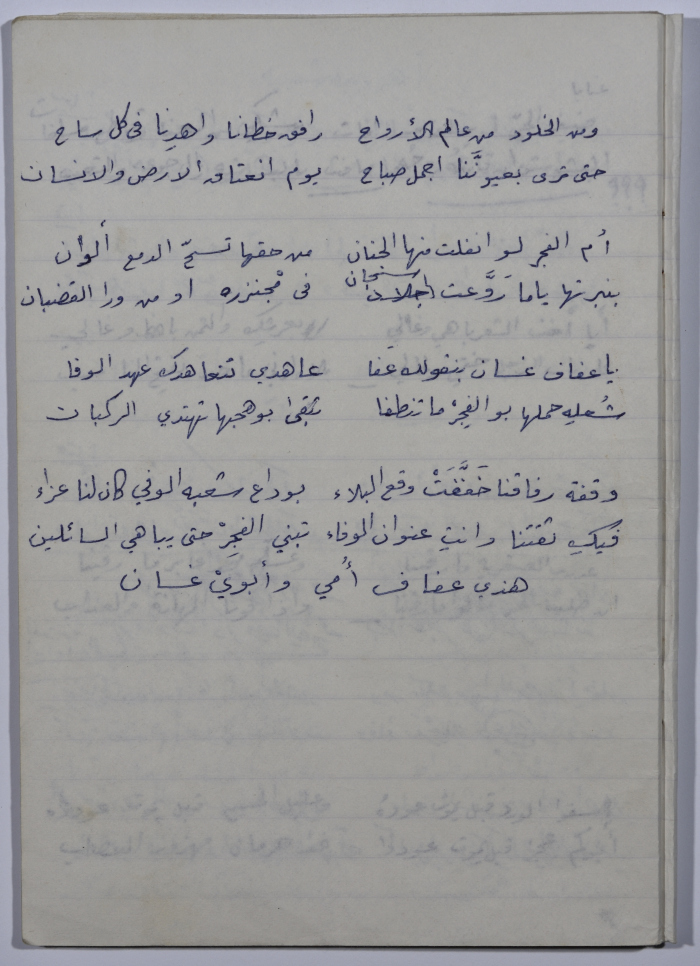 ومن الخلود من عالم الأرواح رافق خطانا واهدِنا في كل ساح
حتى ترى بعيونَّنا اجمل صباح يوم انعتاق الارض والانسان
أم الفجر لو انفلت منها الحنان من حقها تسحّ الدمع ألوان
سنجان
بنبرتها ياما رَوَّعت اجلاد في مْجنزره او من ورا القضبان
يا عفاف غسان بنقولك عفا عاهدي تنعاهدك عهد الوفا
شُعله حملها بو الفِجِرْ ما تنطفا تبقى بوهجها تهتدي الركبان
وقفة رفاقنا خَفَّفَتْ وقع البلاء بوداع شعبه الوفي كان لنا عزاء
فيكِ ثقتنا وانتِ عنوان الوفاء تبني الفجِرْ حتى يباهي السائلين
هذي عفاف أُمي وأبويْ غسان